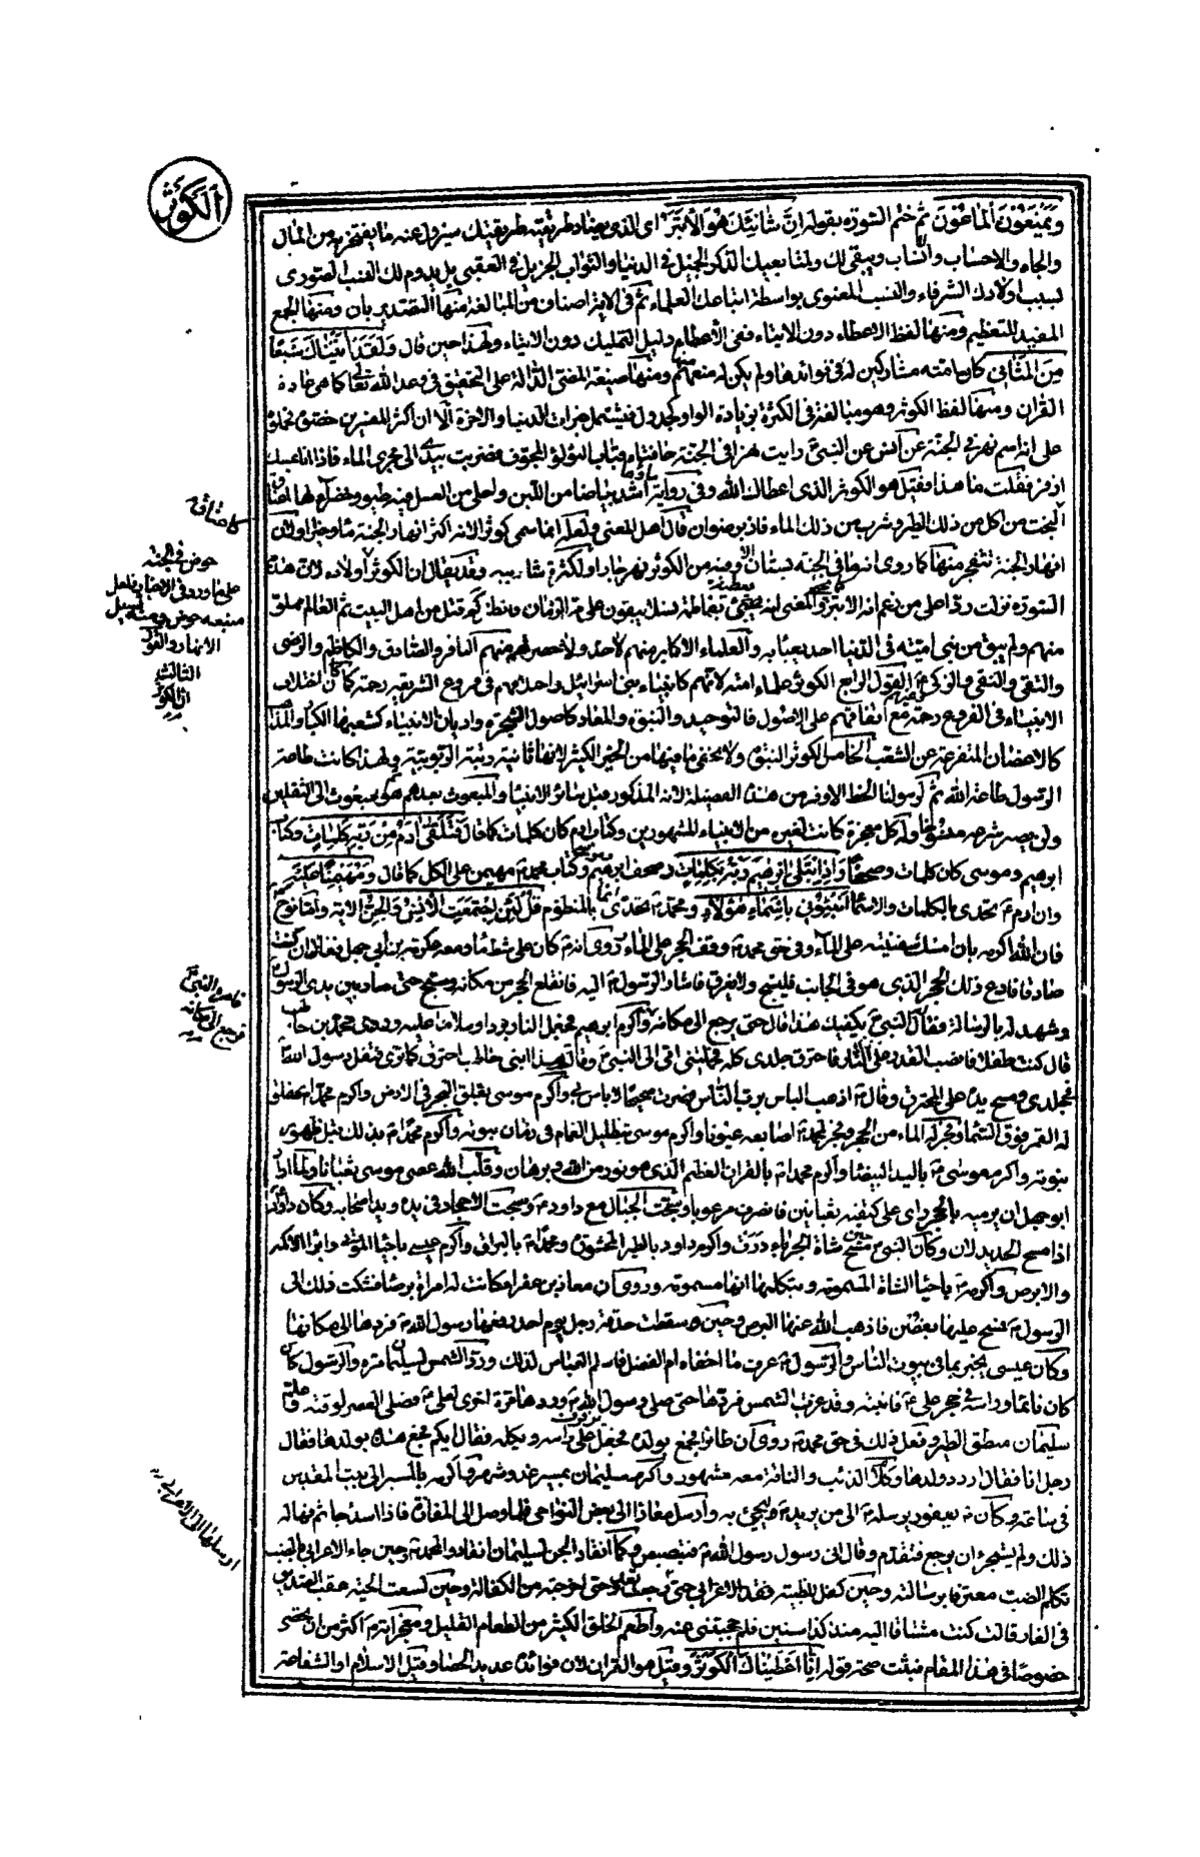 الكوثر
ويمنعون الماعون ثم ختم السورة بقوله ان شانئك هو الابتر اى الذى يعاند طريقته طريقتك سيزول عنه ما يفتخر به من المال
والجاه والاحساب والانساب ويبقى لك ولمتابعيك الذكر الجميل فى الدنيا والثواب الجزيل فى العقبى بل يدوم لك النسب الصورى
بسبب اولادك الشرفاء والنسب المعنوى بواسطة اتباعك العلماء ثم فى الاية اصناف من المبالغة منها التصدير بان ومنها الجمع
المفيد للتعظيم ومنها لفظ الاعطاء دون الايتاء ففى الاعطاء دليل التمليك دون الايتاء ولهذا حين قال ولقد آتيناك سبعا
من المثانى كان امته مشاركين له فى فوائدها ولم يكن له منعهم منها ومنها صيغة المضى الدالة على التحقيق فى وعد الله تعالى كما هى عادة
القرآن ومنها لفظ الكوثر وهو مبالغة فى الكثرة بزيادة الواو كجدول فيشتمل خيرات الدنيا والاخرة الا ان اكثر المفسرين خصوه فحملوه
على انه اسم نهر فى الجنة عن انس عن النبى رايت نهرا فى الجنة حافتاه قباب اللؤلؤ المجوف فضربت بيدى الى مجرى الماء فاذا انا بمسك
اذفر فقلت ما هذا فقيل هو الكوثر الذى اعطاك الله وفى رواية انس اشد بياضا من اللبن واحلى من العسل فيه طيور خضر لها اعناق
البخت من اكل من ذلك الطير وشرب من ذلك الماء فاز برضوان قال اهل المعنى ولعله انما سمى كوثرا لانه اكثر انهار الجنة ماء وخيرا او لان
انهار الجنة تتفجر منها كما روى انه ما فى الجنة بستان الا وفيه من الكوثر نهر جار او لكثرة شاربيه وقد يقال ان الكوثر اولاده لان هذه
السورة نزلت ردا على من زعم انه الابتر والمعنى انه يعطيه بفاطمة نسلا يبقون على مر الزمان فانظر كم قتل من اهل البيت ثم العالم مملو
منهم ولم يبق من بنى امية فى الدنيا احد يعبأ به والعلماء الاكابر منهم لا حد ولا حصر لهم منهم الباقر والصادق والكاظم والرضى
والتقى والنقى والزكى القول الرابع الكوثر علماء امته لانهم كانبياء بنى اسرائيل واختلافهم فى فروع الشريعة رحمة كما كان اختلاف
الانبياء فى الفروع رحمة مع اتفاقهم على الاصول فالتوحيد والنبوة والمعاد كاصول الشجرة واديان الانبياء كشعبها الكبار والمذاهب
كالاغصان المتفرعة عن الشعب الخامس الكوثر النبوة ولا يخفى ما فيها من الخير الكثير لانها ثانية رتبة الربوبية ولهذا كانت طاعة
الرسول طاعة الله ثم لرسولنا الحظ الاوفر من هذه الفضيلة لانه المذكور قبل سائر الانبياء والمبعوث بعدهم ثم هو مبعوث الى الثقلين
ولن يصير شرعه منسوخا وله كل معجزة كانت لغيره من الانبياء المشهورين وكتاب ادم كان كلمات كما قال فتلقى آدم من ربه كلمات وكتاب
ابرهيم وموسى كان كلمات وصحفا واذ ابتلى ابرهيم ربه بكلمات وصحف ابرهيم وموسى وكتاب محمد مهيمن على الكل كما قال ومهيمنا عليه
وان ادم تحدى بالكلمات والاسماء انبئونى باسماء هؤلاء ومحمد تحدى بالمنظوم قل لئن اجتمعت الانس والجن الاية ولما نوح
فان الله اكرمه بان امسك سفينته على الماء وفى حق محمد وقف الحجر على الماء روى انه كان على شط ماء ومعه عكرمة بن ابى جهل فقال ان كنت
صادقا فادع ذلك الحجر الذى هو فى الجانب فليسبح ولا يغرق فاشار الرسول اليه فانقلع الحجر من مكانه وسبح حتى صار بين يدى الرسول
وشهد له بالرسالة فقال النبى يكفيك هذا قال حتى يرجع الى مكانه واكرم ابرهيم فجعل النار بردا وسلاما عليه وروى محمد بن حاطب
قال كنت طفلا فانصب القدر على النار فاحترق جلدى كله فحملتنى امى الى النبى وقالت هذا ابنى حاطب احترق كما ترى فتفل رسول الله
فجلدى ومسح يده على المحترق وقال اذهب الباس رب الناس فصرت صحيحا لا باس بى واكرم موسى بفلق البحر فى الارض واكرم محمدا بفلق
له القمر فوق السماء وفجر له الماء من الحجر وفجر لمحمد اصابعه عيونا واكرم موسى بتظليل الغمام فى زمان نبوته واكرم محمدا بذلك قبل ظهور
نبوته واكرم موسى باليد البيضاء واكرم محمدا بالقرآن العظيم الذى هو نور من الله وبرهان وقلب الله عصى موسى ثعبانا ولما اراد
ابو جهل ان يرميه بالحجر راى على كتفيه ثعبانين فانصرف مرعوبا وسبحت الجبال مع داود وسبحت الاحجار فى يده ويد اصحابه وكان داود
اذا مسح الحديد لان وكان النبى حين مسح شاة الجرباء درت واكرم داود بالطير المحشورة ومحمدا بالبراق واكرم عيسى باحياء الموتى وابراء الاكمه
والابرص واكرمه باحياء الشاة المسمومة وبتكلمها انها مسمومة وروى ان معاذ بن عفراء كانت له امرأة برصاء فشكت ذلك الى
الرسول فمسح عليها بغصن فاذهب الله عنها البرص وحين سقطت حدقة رجل يوم احد رفعها رسول الله فردها الى مكانها
وكان عيسى يخبر بما فى بيوت الناس والرسول عرف ما اخفاه ام الفضل فاسلم العباس لذلك ورد الشمس لسليمان مرة والرسول كان
كان نائما وراسه فى حجر على فانتبه وقد غربت الشمس فردها حتى صلى رسول الله وردها مرة اخرى لعلى فصلى العصر لوقته وعلم
سليمان منطق الطير وفعل ذلك فى حق محمد روى ان طائرا فجع بولده فجعل يرفرف على راسه ويكلمه فقال ايكم فجع هذه بولدها فقال
رجل انا فقال اردد ولدها وكلام الذئب والناقة معه مشهور واكرم سليمان بمسير غدو شهر واكرمه بالمسير الى بيت المقدس
فى ساعة وكان يعفور يرسله الى من يريده فيجئ به وارسل معاذا الى بعض النواحى فلما وصل الى المفازة فاذا اسد جاثم فهاله
ذلك ولم يستجر ان يرجع فتقدم وقال انى رسول رسول الله فتبصبص وكما انقاد الجن لسليمان انقادوا لمحمد وحين جاء الاعرابى بالضب
تكلم الضب معترفا برسالته وحين كفل الظبية فقد الاعرابى حتى رجعت وحن الجذع حتى اخرجته من الكفالة وحين لسعت الحية عقب الصديق
فى الغار قالت كنت مشتاقا اليه منذ كذا سنين فلم حجبتنى عنه واطعم الخلق الكثير من الطعام القليل ومعجزاته اكثر من ان تحصى
خصوصا فى هذا المقام فثبتت صحة قوله انا اعطيناك الكوثر وقيل هو القرآن لان فوائده عديد الحصا وقيل الاسلام او الشفاعة
حوض فى الجنة
على ما ورد فى الاخبار
منبعه حوض ومنه يسيل
الانهار والقول
الثالث
ان الكوثر
فامره النبى
فرجع الى مكانه
ارسلها الى الاعرابى